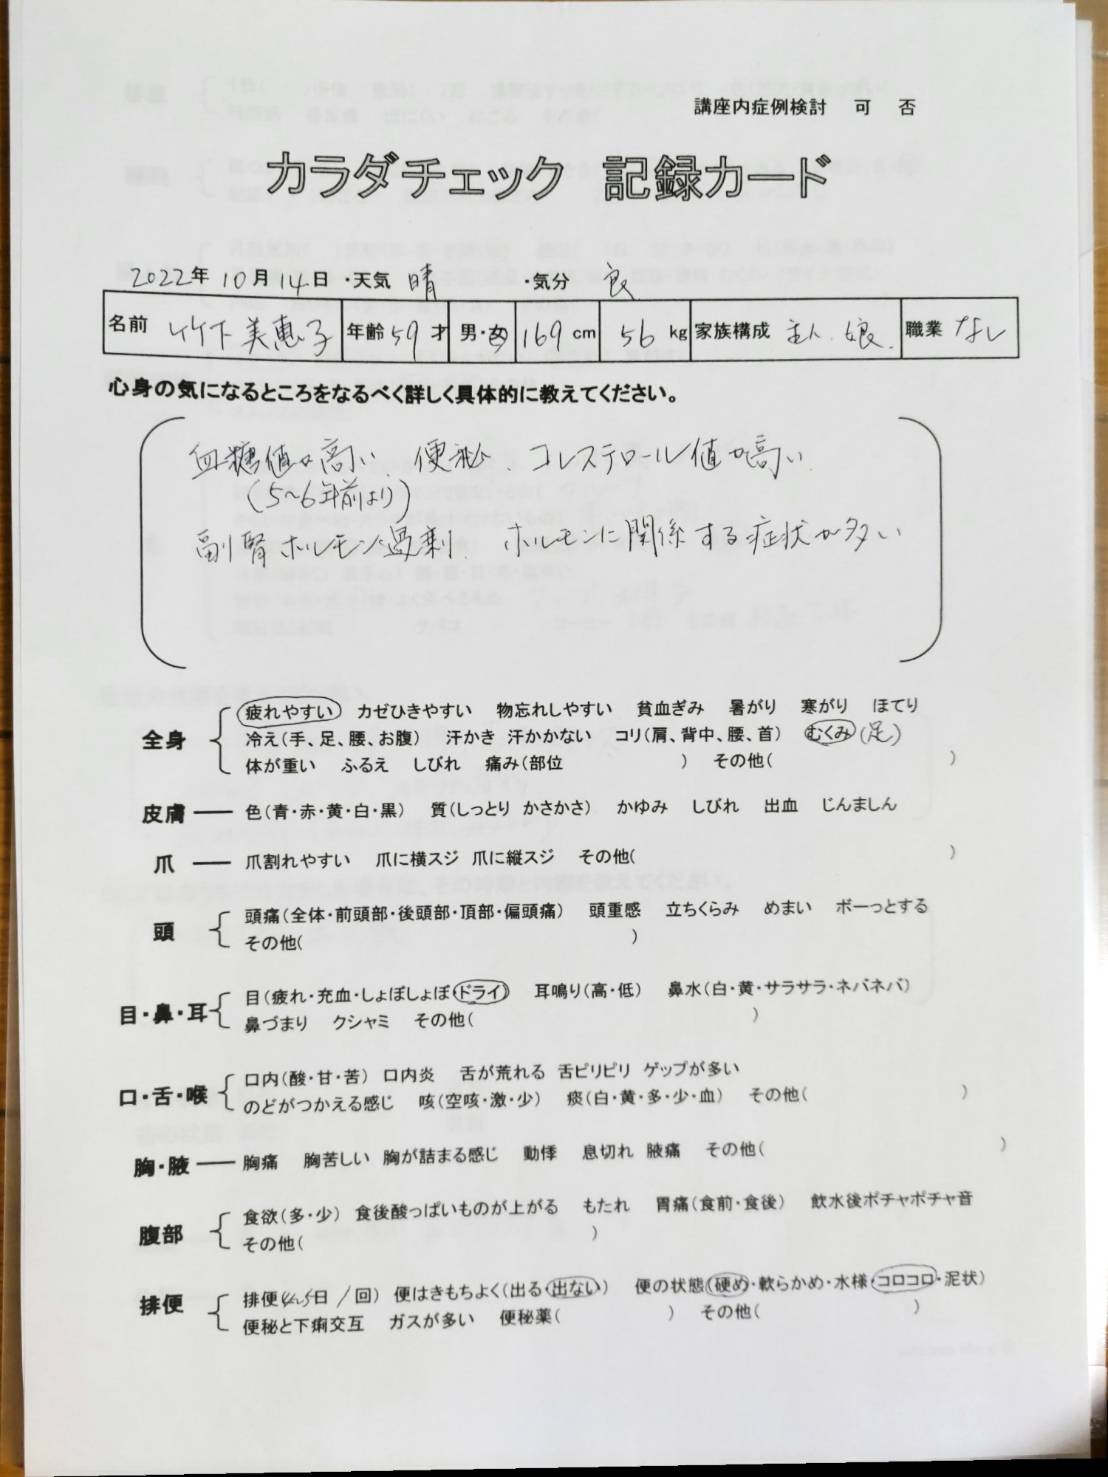 講座内症例検討 可 否
カラダチェック 記録カード
2022年 10月 14日 ・天気 晴 ・気分 良
名前 竹下 美恵子 年齢 59 才 男・女 169 cm 56 kg 家族構成 主人、娘、 職業 なし
心身の気になるところをなるべく詳しく具体的に教えてください。
血糖値が高い、便秘、コレステロール値が高い、
(5~6年前より)
副腎ホルモン過剰、ホルモンに関係する症状が多い
全身 疲れやすい カゼひきやすい 物忘れしやすい 貧血ぎみ 暑がり 寒がり ほてり
冷え(手、足、腰、お腹) 汗かき 汗かかない コリ(肩、背中、腰、首) むくみ (足)
体が重い ふるえ しびれ 痛み(部位 ) その他( )
皮膚 ── 色(青・赤・黄・白・黒) 質(しっとり かさかさ) かゆみ しびれ 出血 じんましん
爪 ── 爪割れやすい 爪に横スジ 爪に縦スジ その他( )
頭 頭痛(全体・前頭部・後頭部・頂部・偏頭痛) 頭重感 立ちくらみ めまい ボーっとする
その他( )
目・鼻・耳 目(疲れ・充血・しょぼしょぼ・ドライ) 耳鳴り(高・低) 鼻水(白・黄・サラサラ・ネバネバ)
鼻づまり クシャミ その他( )
口・舌・喉 口内(酸・甘・苦) 口内炎 舌が荒れる 舌ピリピリ ゲップが多い
のどがつかえる感じ 咳(空咳・激・少) 痰(白・黄・多・少・血) その他( )
胸・腋 ── 胸痛 胸苦しい 胸が詰まる感じ 動悸 息切れ 腋痛 その他( )
腹部 食欲(多・少) 食後酸っぱいものが上がる もたれ 胃痛(食前・食後) 飲水後ポチャポチャ音
その他( )
排便 排便(4、5日 /回) 便はきもちよく(出る・出ない) 便の状態(硬め・軟らかめ・水様・コロコロ・泥状)
便秘と下痢交互 ガスが多い 便秘薬( ) その他( )